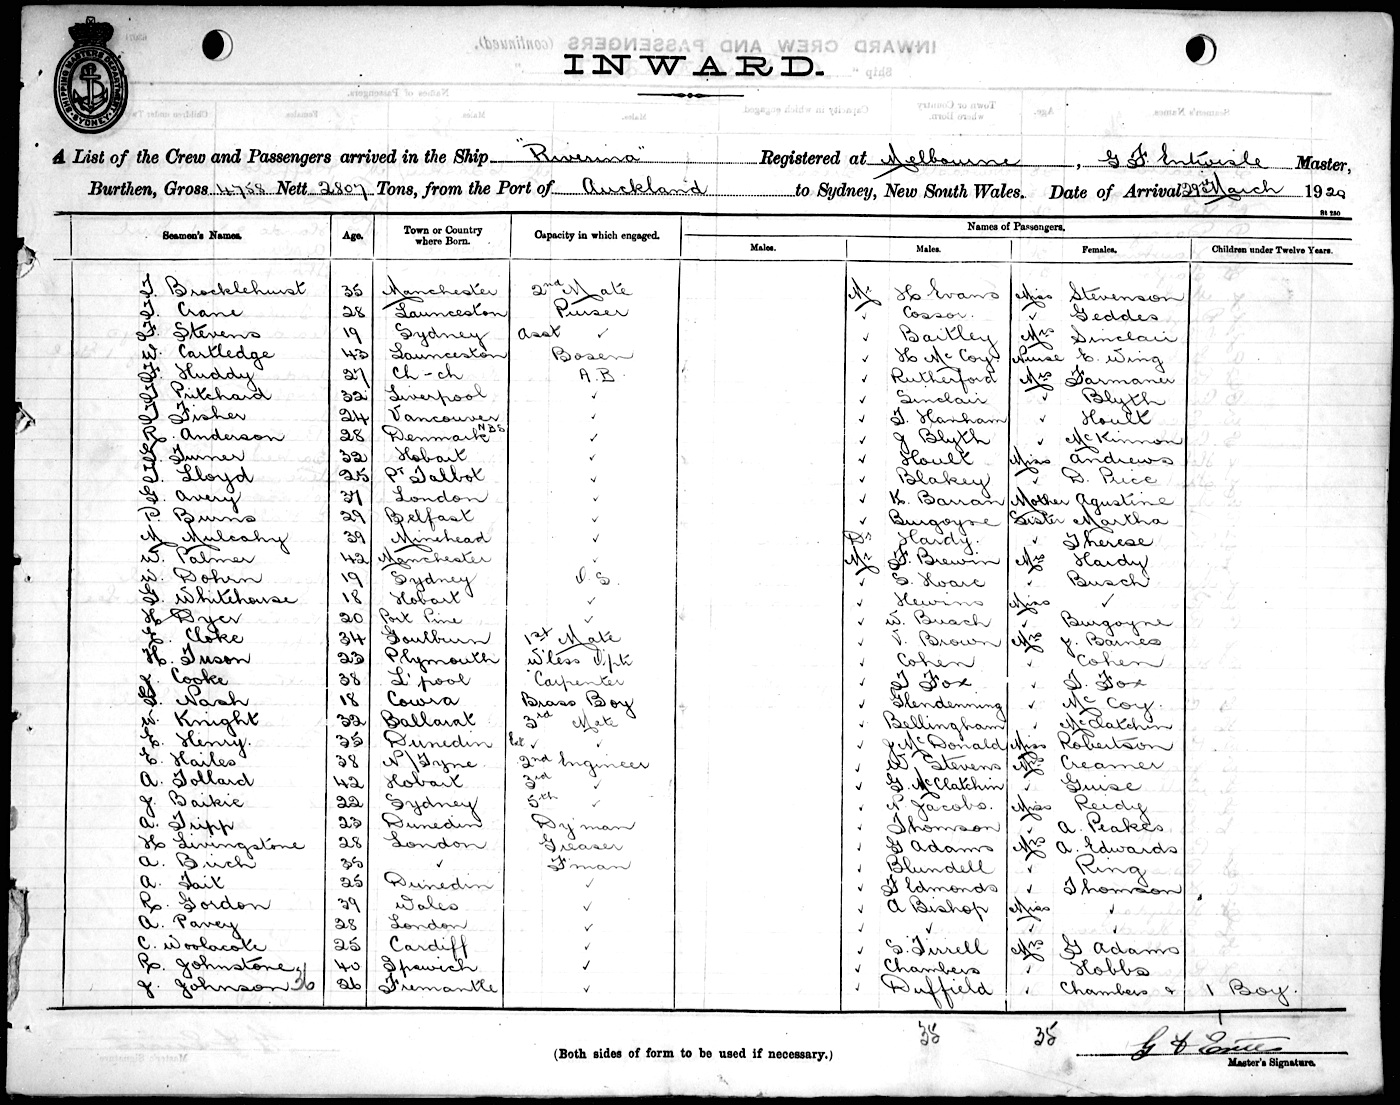 INWARD.
SHIPPING MASTERS DEPARTMENT SYDNEY
A List of the Crew and Passengers arrived in the Ship "Riverina" Registered at Melbourne, G F Entwisle Master,
Burthen, Gross 4758 Nett 2807 Tons, from the Port of Auckland to Sydney, New South Wales. Date of Arrival 29th March 1920
Names of Passengers.
Seamen's Names. Age. Town or Country where Born. Capacity in which engaged. Males. Males. Females. Children under Twelve Years.
Brocklehurst 35 Manchester 2nd Mate Mr H Evans Miss Stevenson
Crane 28 Launceston Purser ✓ Cossor ✓ Geddes
Stevens 19 Sydney Asst ✓ ✓ Baitley Mrs Sinclair
W. Cartledge 43 Launceston Bosen ✓ H McCoy Nurse E. Wing
Huddy 27 Ch-ch A.B. ✓ Rutherford Mrs Farmaner
Pritchard 32 Liverpool ✓ ✓ Sinclair ✓ Blyth
Fisher 24 Vancouver ✓ ✓ Hanham ✓ Hoult
R. Anderson 28 Denmark NBS ✓ ✓ J Blyth ✓ McKinnon
Turner 32 Hobart ✓ ✓ Hoult Miss Andrews
Lloyd 25 Pt Talbot ✓ ✓ Blakey ✓ D. Price
Avery 37 London ✓ ✓ K. Barran Mother Agustine
Burns 29 Belfast ✓ ✓ Burgoyne Sister Martha
M Mulcahy 39 Minehead ✓ Dr Hardy ✓ Therese
W. Palmer 42 Manchester ✓ Mr F. Brewin Mrs Hardy
Dohrn 19 Sydney O.S. ✓ S. Hoare ✓ Busch
Whitehouse 18 Hobart ✓ ✓ Hewins Miss ✓
H Dyer 20 Port Pirie ✓ ✓ W. Busch ✓ Burgoyne
Cloke 34 Goulburn 1st Mate ✓ V. Brown Mrs J. Baines
H. Tuson 23 Plymouth W'less Optr ✓ Cohen ✓ Cohen
Cooke 38 L'pool Carpenter ✓ T Fox ✓ T. Fox
Nash 18 Cowra Brass Boy ✓ Glendenning ✓ McCoy
W. Knight 32 Ballarat 3rd Mate ✓ Bellingham ✓ McClatchin
E. Henry. 35 Dunedin ✓ ✓ ✓ J McDonald Miss Robertson
E. Hailes 38 N/Tyne 2nd Engineer ✓ W Stevens Mrs Creamer
A. Tollard 42 Hobart 3rd ✓ ✓ G McClatchin ✓ Guise
J. Baikie 22 Sydney 5th ✓ ✓ N Jacobs. Miss Reidy
A. Tripp 23 Dunedin Dy'man ✓ Thomson ✓ A. Peakes
H Livingstone 28 London Greaser ✓ G Adams Mrs A. Edwards
A. Birch 35 ✓ F'man ✓ Blundell ✓ Ring
A. Tait 25 Dunedin ✓ ✓ F Edmonds ✓ Thomson
R. Gordon 39 Wales ✓ ✓ A Bishop Miss ✓
A. Pavey 28 London ✓ ✓ ✓ ✓ ✓
C. Woolacote 25 Cardiff ✓ ✓ S. Tirrell Mrs G Adams
R. Johnstone 40 Ipswich ✓ ✓ Chambers ✓ Hobbs
J. Johnson 36 26 Fremantle ✓ ✓ Duffield ✓ Chambers & 1 Boy.
35 35 1
(Both sides of form to be used if necessary.)
Master's Signature.